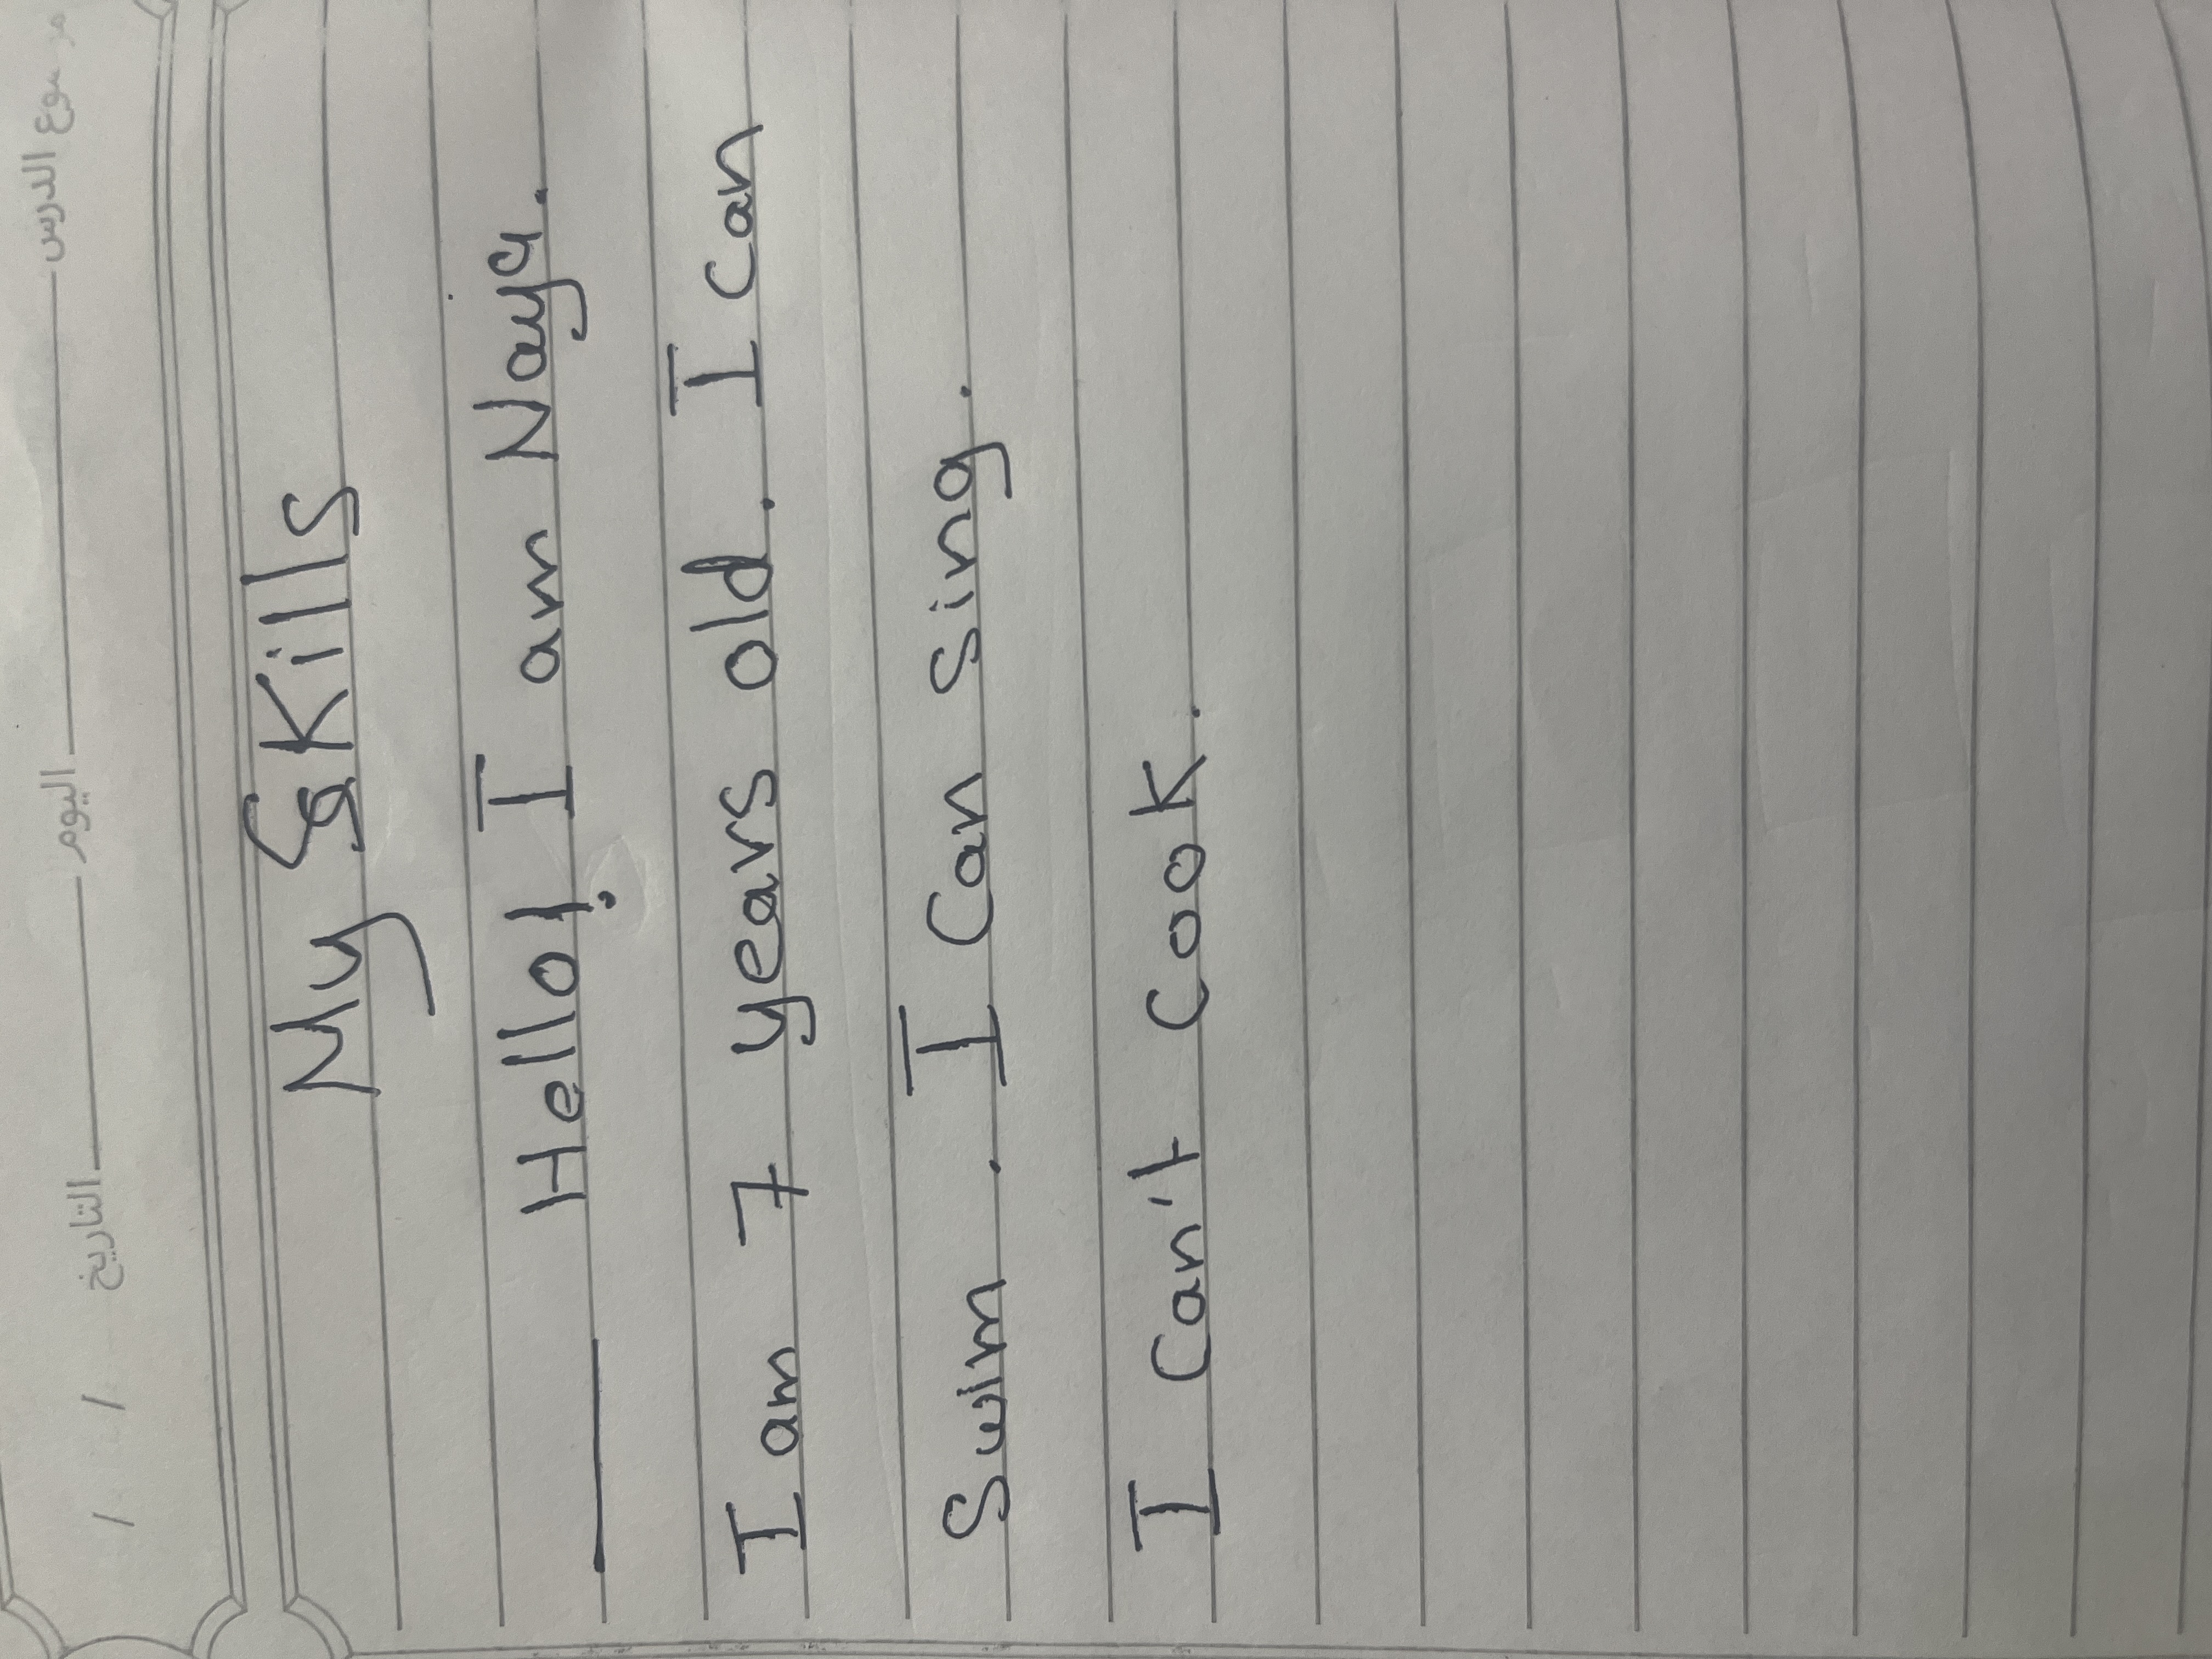 موضوع الدرس اليوم التاريخ / /
My Skills
Hello! I am Naya.
I am 7 years old. I can
Swim. I Can Sing.
I Can't Cook.